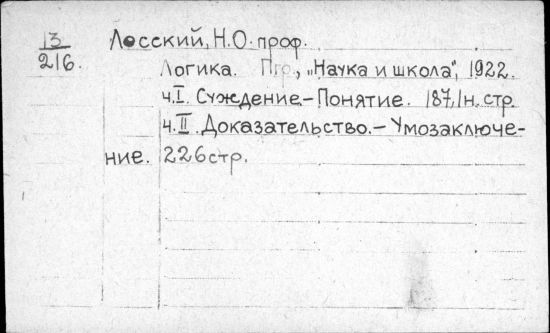 13
216.
Лосский, Н.О. проф.
Логика. Пгр., „Наука и школа", 1922.
ч.I. Суждение.–Понятие. 187,1н.стр.
ч.II. Доказательство.–Умозаключе-
ние. 226стр.